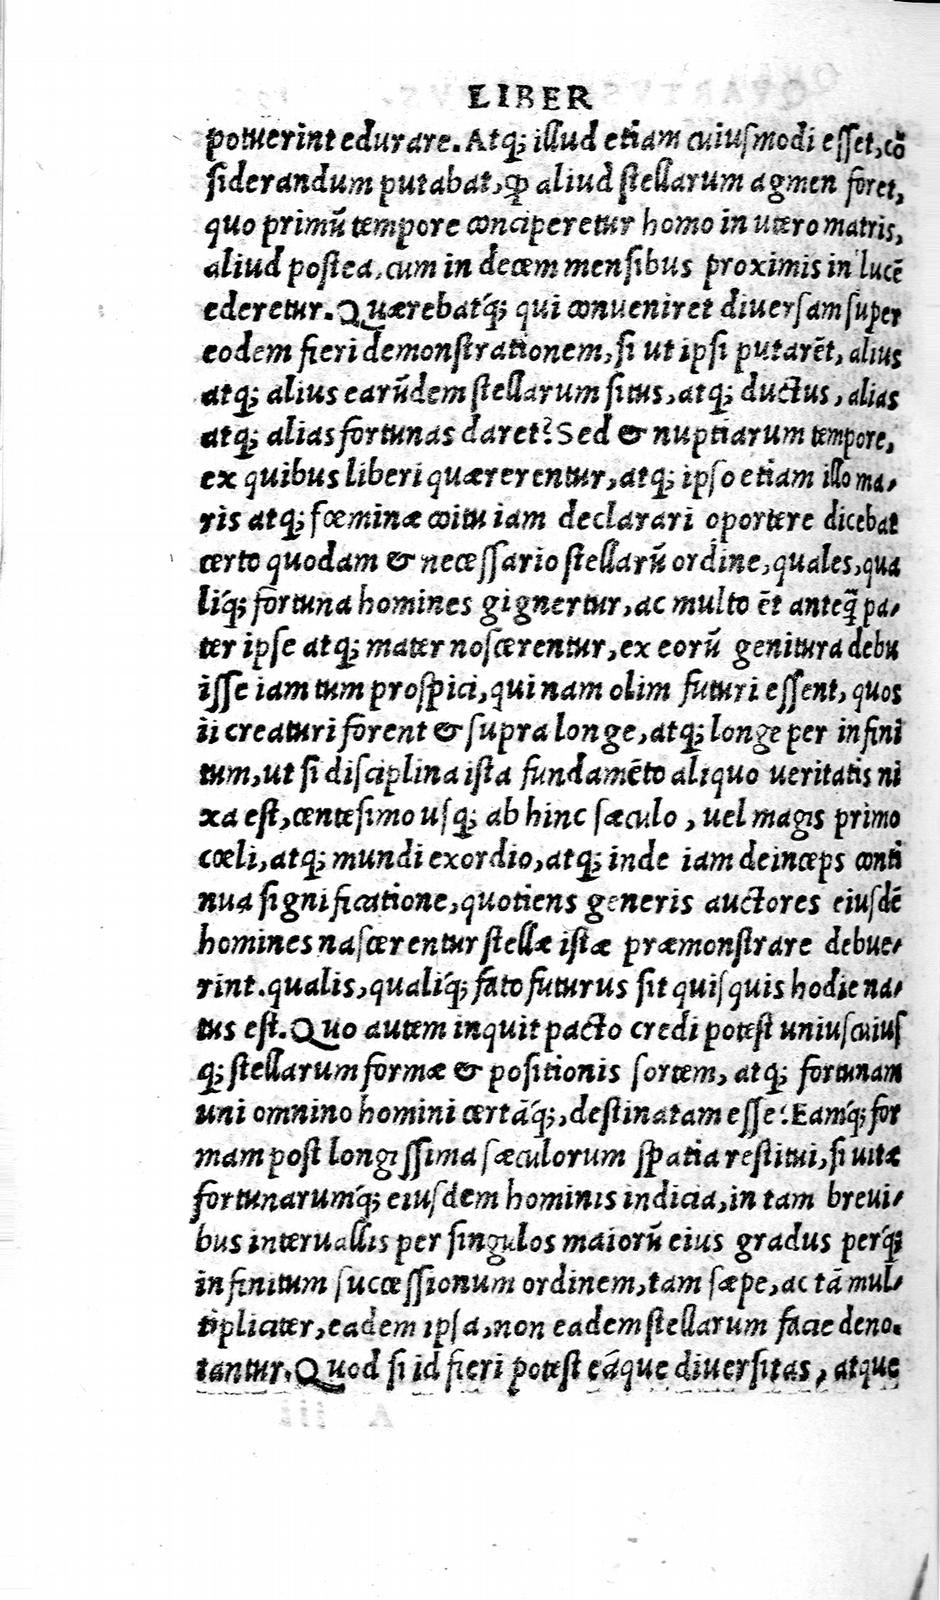 LIBER
potuerint edurare. Atq; illud etiam cuiusmodi esset, cõ
siderandum putabat, ꝙ aliud stellarum agmen foret,
quo primũ tempore conciperetur homo in utero matris,
aliud postea, cum in decem mensibus proximis in lucẽ
ederetur. Quærebatq́; qui conueniret diuersam super
eodem fieri demonstrationem, si ut ipsi putarẽt, alius
atq; alius earũdem stellarum situs, atq; ductus, alias
atq; alias fortunas daret? Sed & nuptiarum tempore,
ex quibus liberi quærerentur, atq; ipso etiam illo ma-
ris atq; fœminæ coitu iam declarari oportere dicebat
certo quodam & necessario stellarũ ordine, quales, qua
liq́; fortuna homines gignertur, ac multo ẽt anteq̃ pa-
ter ipse atq; mater noscerentur, ex eorũ genitura debu
isse iam tum prospici, qui nam olim futuri essent, quos
ii creaturi forent & supra longe, atq; longe per infini
tum, ut si disciplina ista fundamẽto aliquo ueritatis ni
xa est, centesimo usq; ab hinc sæculo, uel magis primo
cœli, atq; mundi exordio, atq; inde iam deinceps conti
nua significatione, quotiens generis auctores eiusdẽ
homines nascerentur stellæ istæ præmonstrare debue-
rint. qualis, qualiq́; fato futurus sit quisquis hodie na-
tus est. Quo autem inquit pacto credi potest uniuscuius
q; stellarum formæ & positionis sortem, atq; fortunam
uni omnino homini certãq́;, destinatam esse? Eamq́; for
mam post longissima sæculorum spatia restitui, si uitæ
fortunarumq́; eiusdem hominis indicia, in tam breui-
bus interuallis per singulos maiorũ eius gradus perq́;
infinitum successionum ordinem, tam sæpe, ac tã mul-
tipliciter, eadem ipsa, non eadem stellarum facie deno-
tantur. Quod si id fieri potest eáque diuersitas, atque